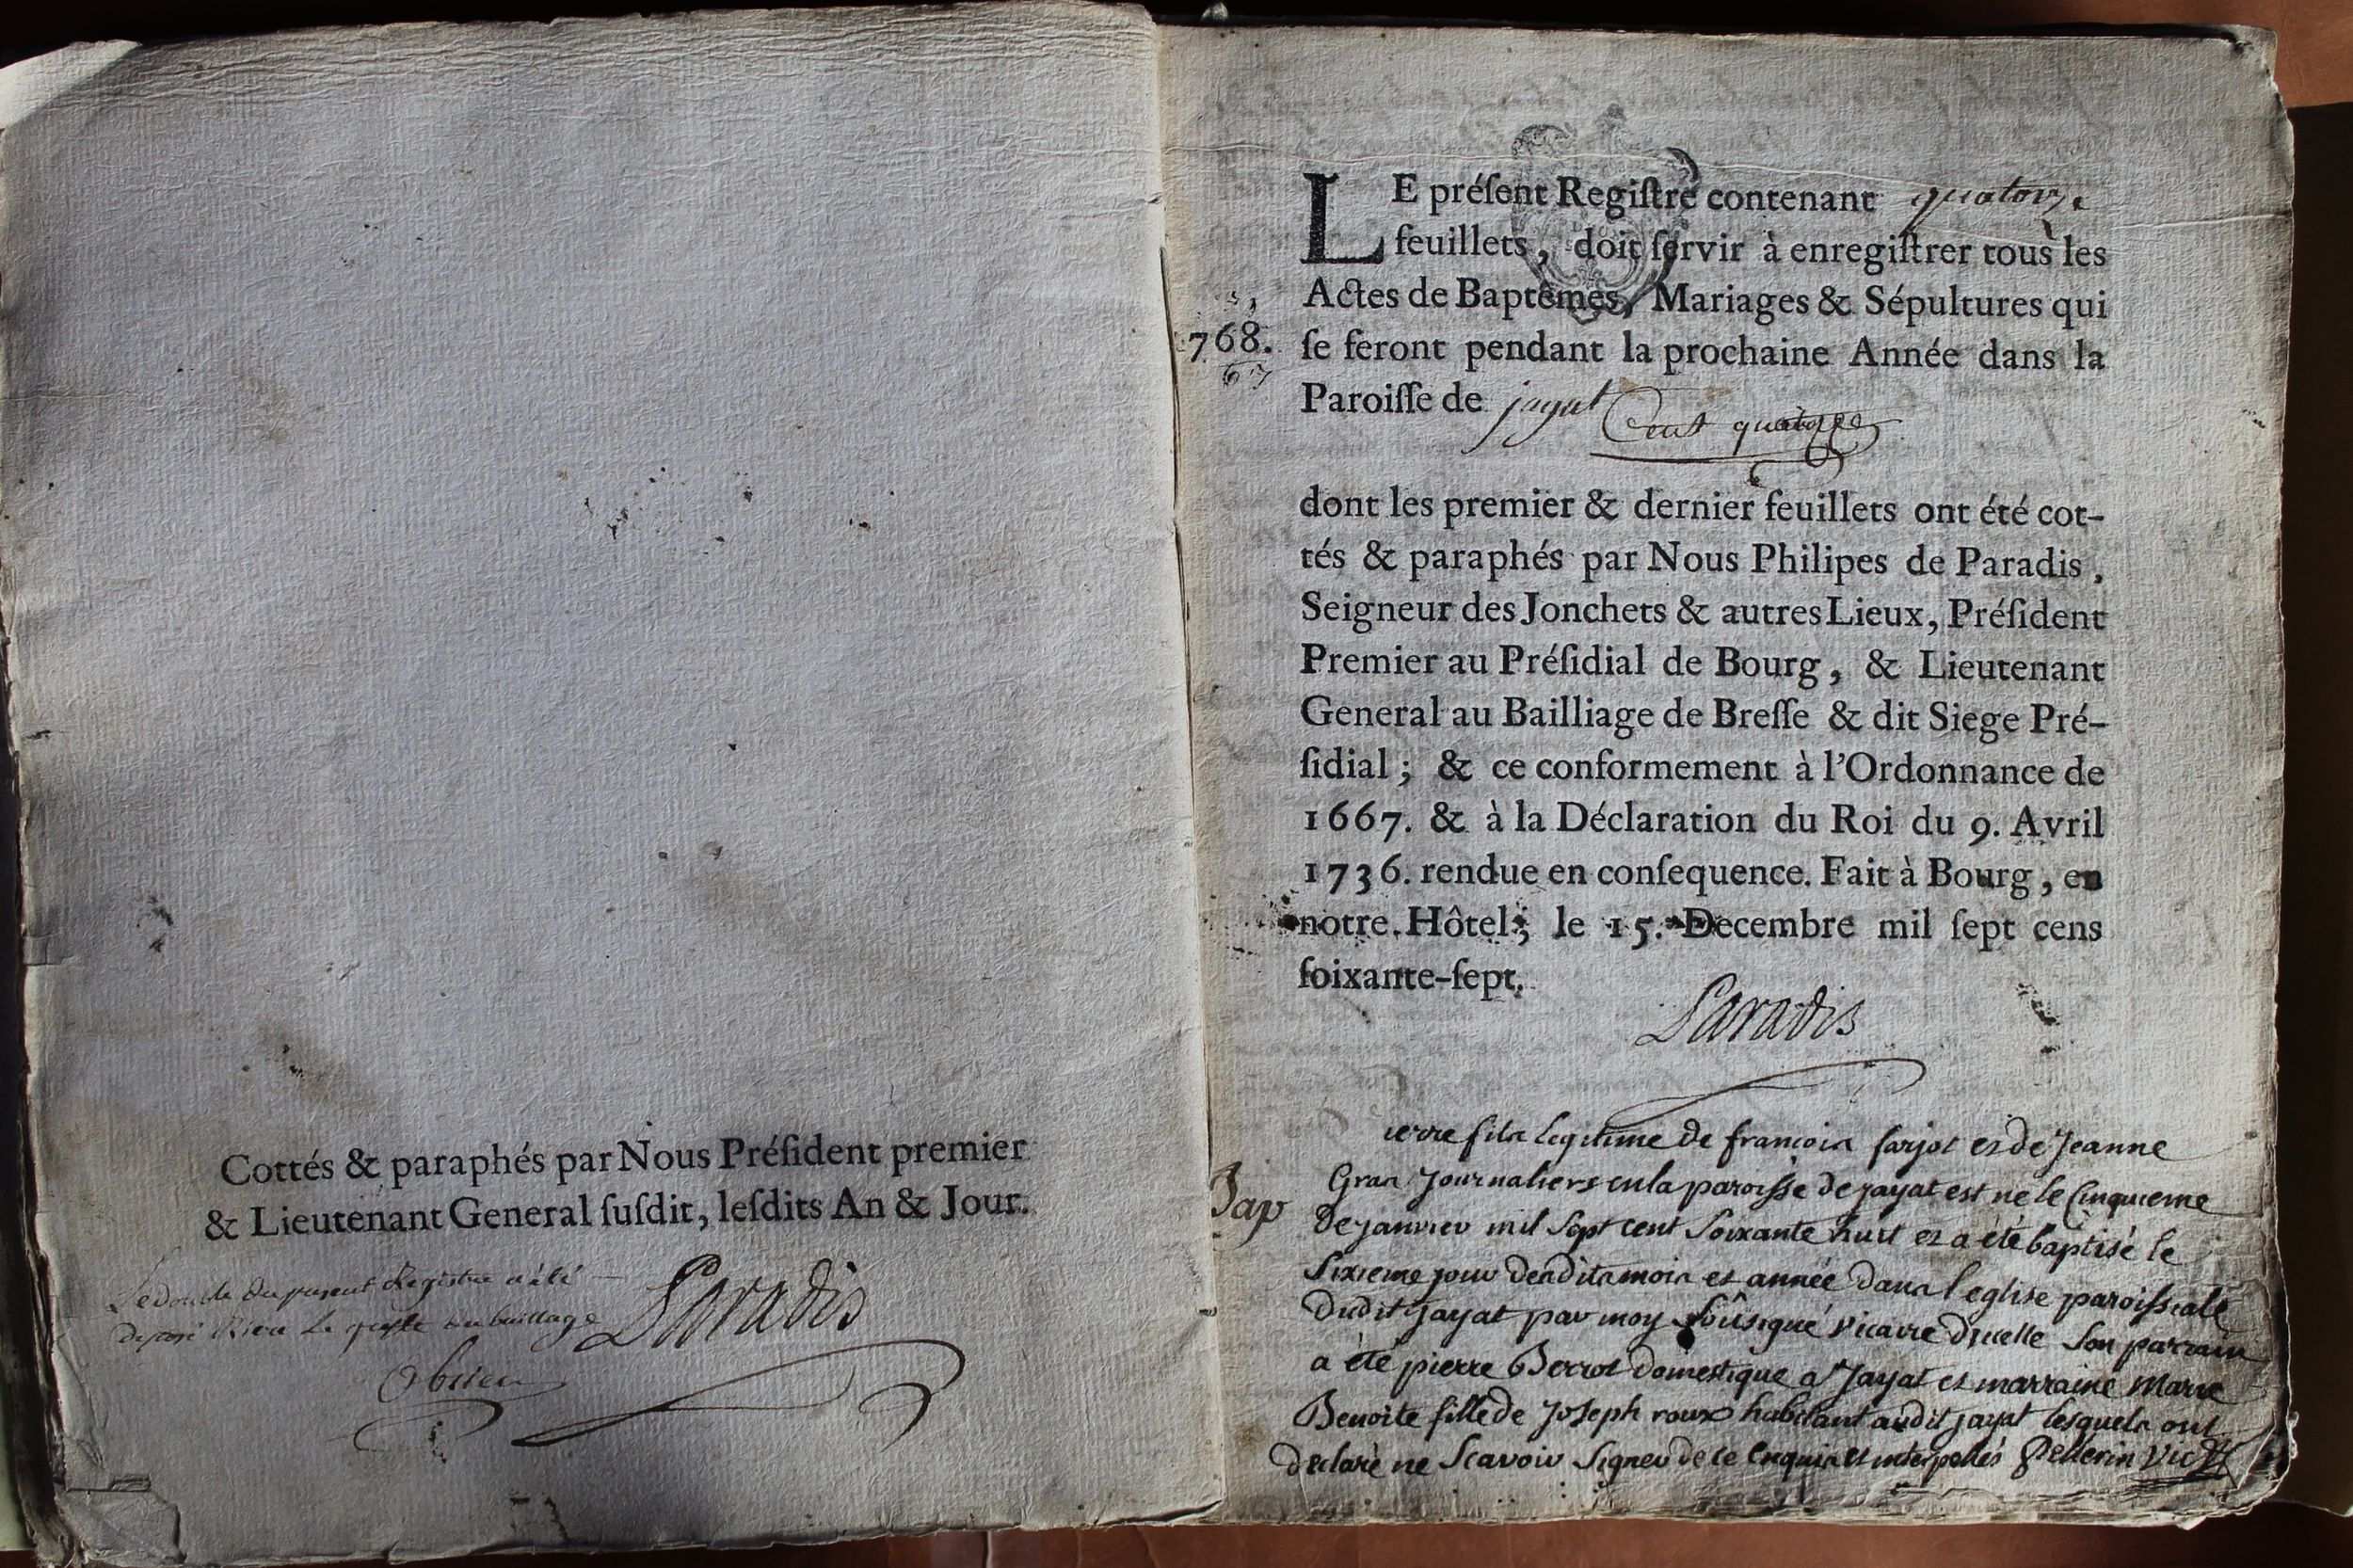 Cottés & paraphés par Nous Préſident premier
& Lieutenant General ſuſdit, leſdits An & Jour.
Le double du present Registre a été
deposé au bailliage
Paradis
LE préſent Regiſtre contenant quatorze
feuillets, doit ſervir à enregiſtrer tous les
Actes de Baptêmes, Mariages & Sépultures qui
768. ſe feront pendant la prochaine Année dans la
67
Paroiſſe de jayat Cent quatorze
dont les premier & dernier feuillets ont été cot-
tés & paraphés par Nous Philipes de Paradis,
Seigneur des Jonchets & autres Lieux, Préſident
Premier au Préſidial de Bourg, & Lieutenant
General au Bailliage de Breſſe & dit Siege Pré-
ſidial; & ce conformement à l'Ordonnance de
1667. & à la Déclaration du Roi du 9. Avril
1736. rendue en conſequence. Fait à Bourg, en
notre Hôtel; le 15. Decembre mil ſept cens
ſoixante-ſept.
Paradis
ierre fils legitime de françois farjot et de Jeanne
Bap Gras Journaliers en la paroisse de jayat est né le Cinquieme
de janvier mil Sept cent Soixante huit et a été baptisé le
Sixieme jour desdits mois et année dans l eglise paroissiale
dudit jayat par moy Soûsigné vicaire d'icelle Son parrain
a été pierre Berrot domestique a Jayat et marraine Marie
Benoite fille de Joseph roux habitant audit jayat lesquels ont
declaré ne Scavoir Signer de ce Enquis et interpellés Pellerin Vic